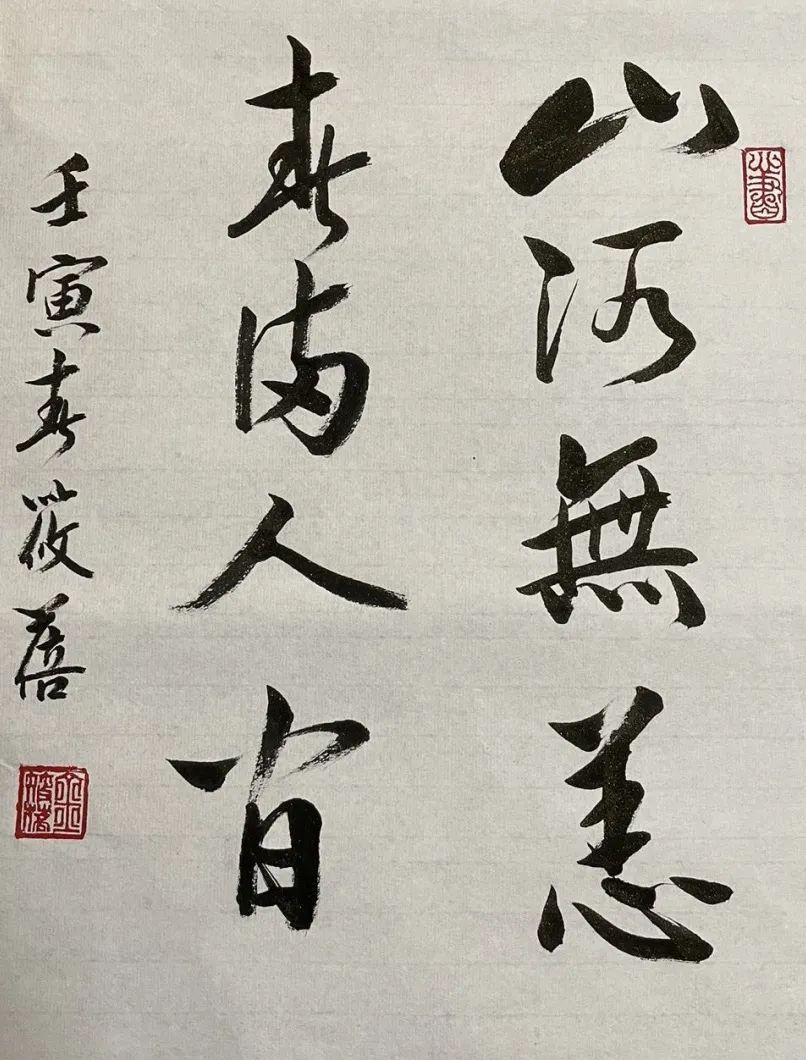 山河無恙
春满人間
壬寅春筱蓓